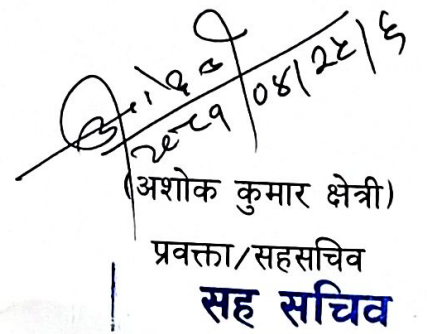 २०८१/०४/२८/६
(अशोक कुमार क्षेत्री)
प्रवक्ता/सहसचिव
सह सचिव